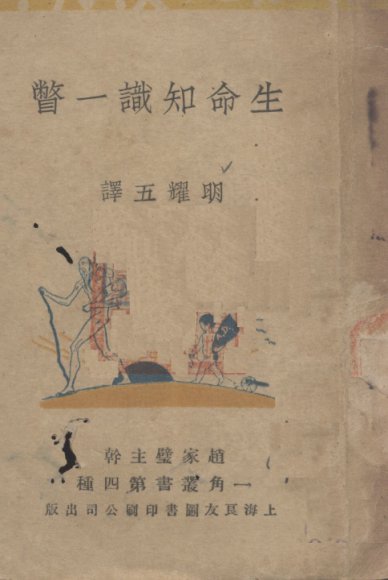 生命知識一瞥
明耀五譯
趙家璧主幹
一角叢書第四種
上海良友圖書印刷公司出版